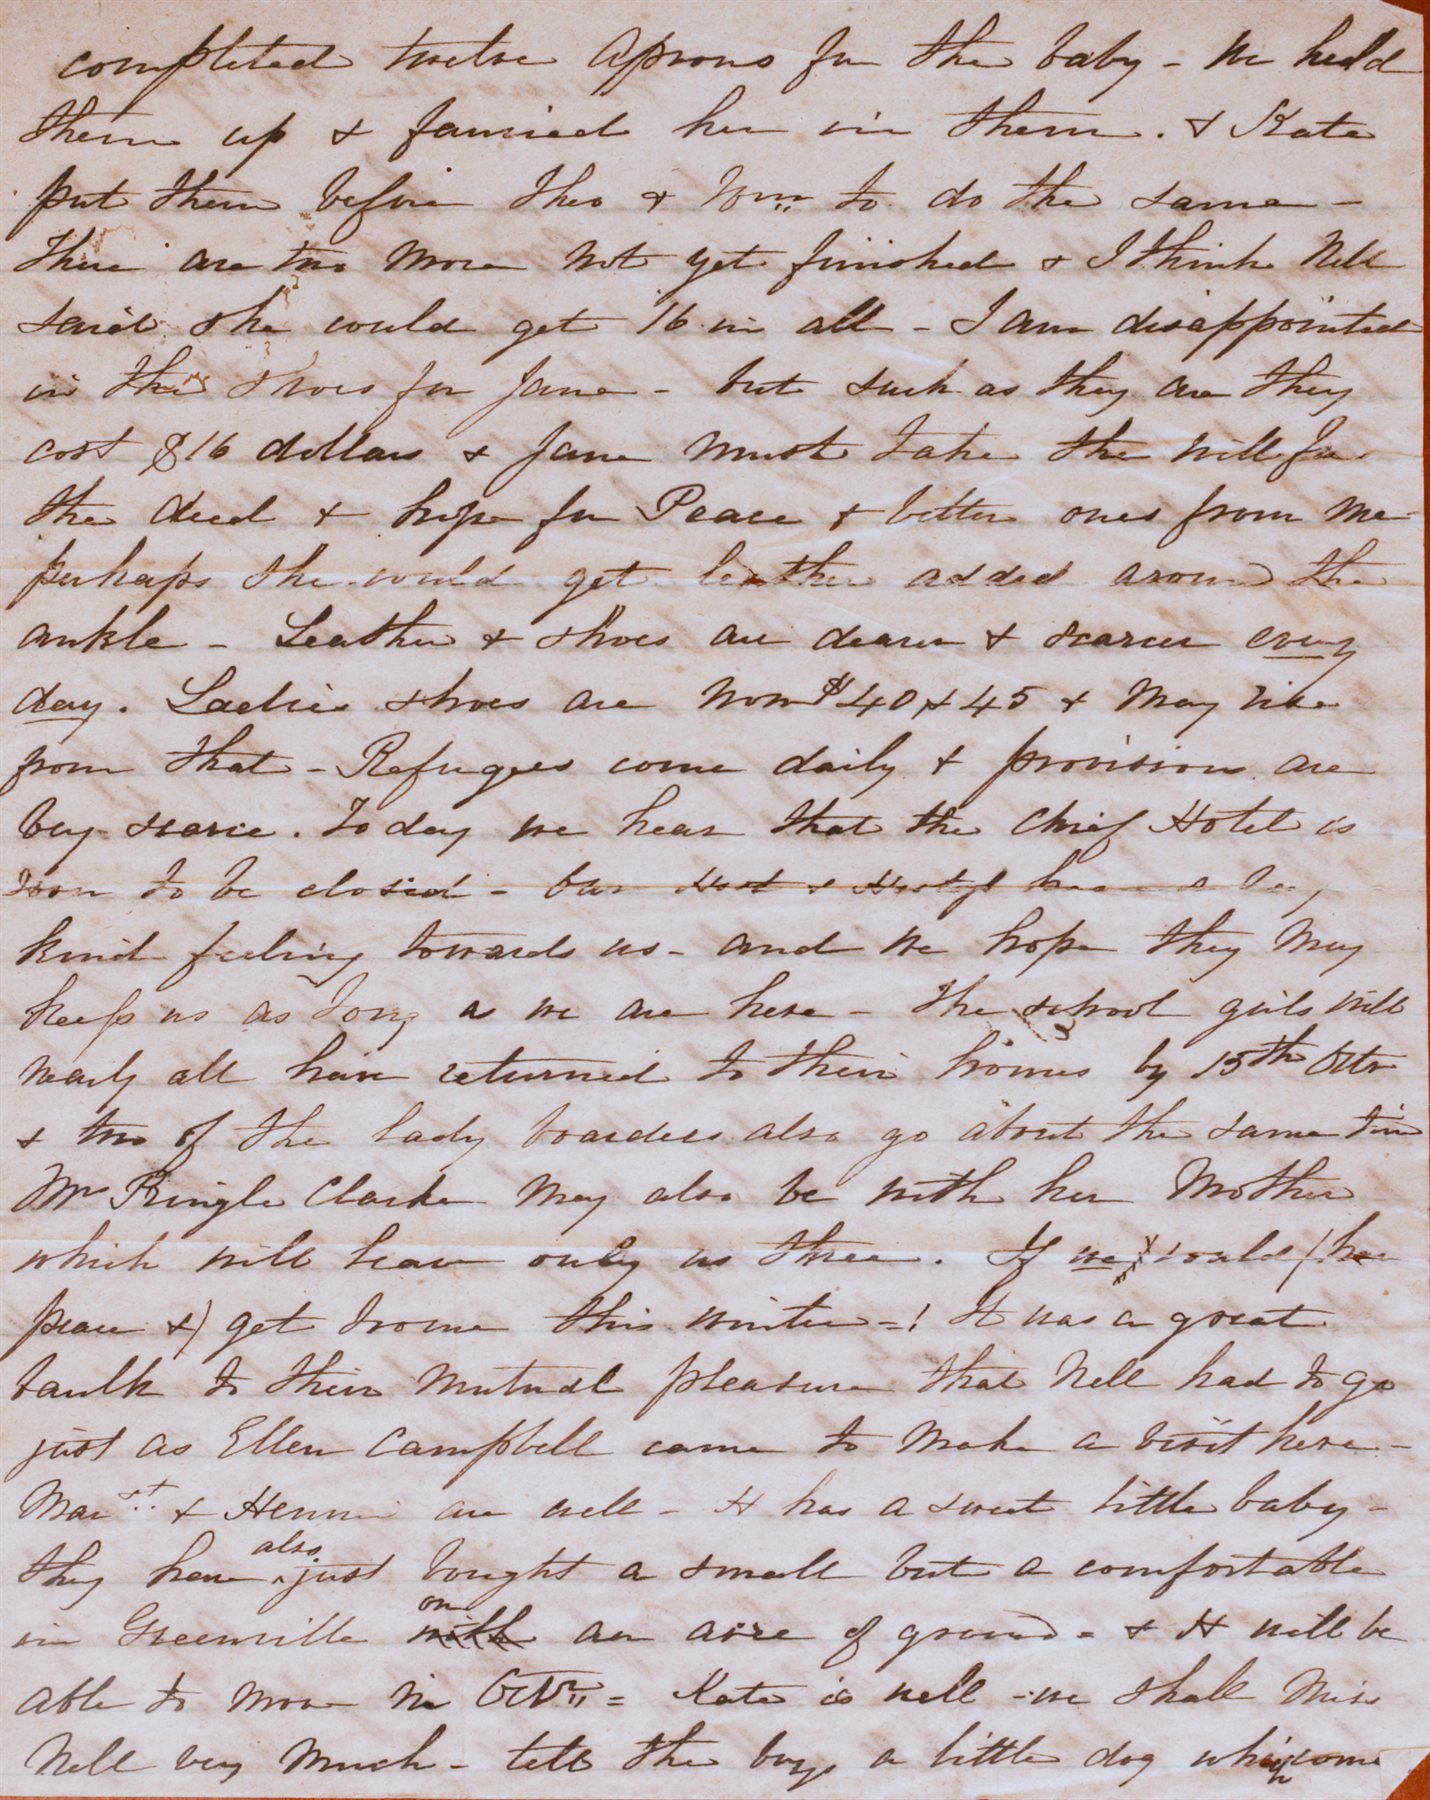 completed twelve Aprons for the baby - We held
them up & fancied her in them. & Kate
put them before Theo & Wm to do the same -
There are two more not yet finished & I think Nell
said she would get 16 in all - I am disappointed
in the shoes for Jane - but such as they are they
cost $16 dollars & Jane must take the will for
the deed & hope for Peace & better ones from me
perhaps she would get leather added around the
ankle - Leather & shoes are dearer & scarcer every
day. Ladies shoes are now $40 & 45 & may rise
from that - Refugees come daily & provisions are
very scarce. To day we hear that the chief Hotel is
soon to be closed - our Host & Hostess have a very
kind feeling towards us - and we hope they may
keep us as long as we are here - The school girls will
nearly all have returned to their homes by 15th Octr
& two of the lady boarders also go about the same time
Mrs Pringle Clarke may also be with her Mother
which will leave only us three. If we could (have
peace &) get home this winter =! It was a great
baulk to their mutual pleasure that Nell had to go
just as Ellen Campbell came to make a visit here -
Mart & Hennie are well - H has a sweet little baby -
they have also just bought a small but a comfortable
in Greenville with on an acre of ground = & H will be
able to move in Octr = Kate is well - we shall miss
Nell very much - tell the boys a little dog which come